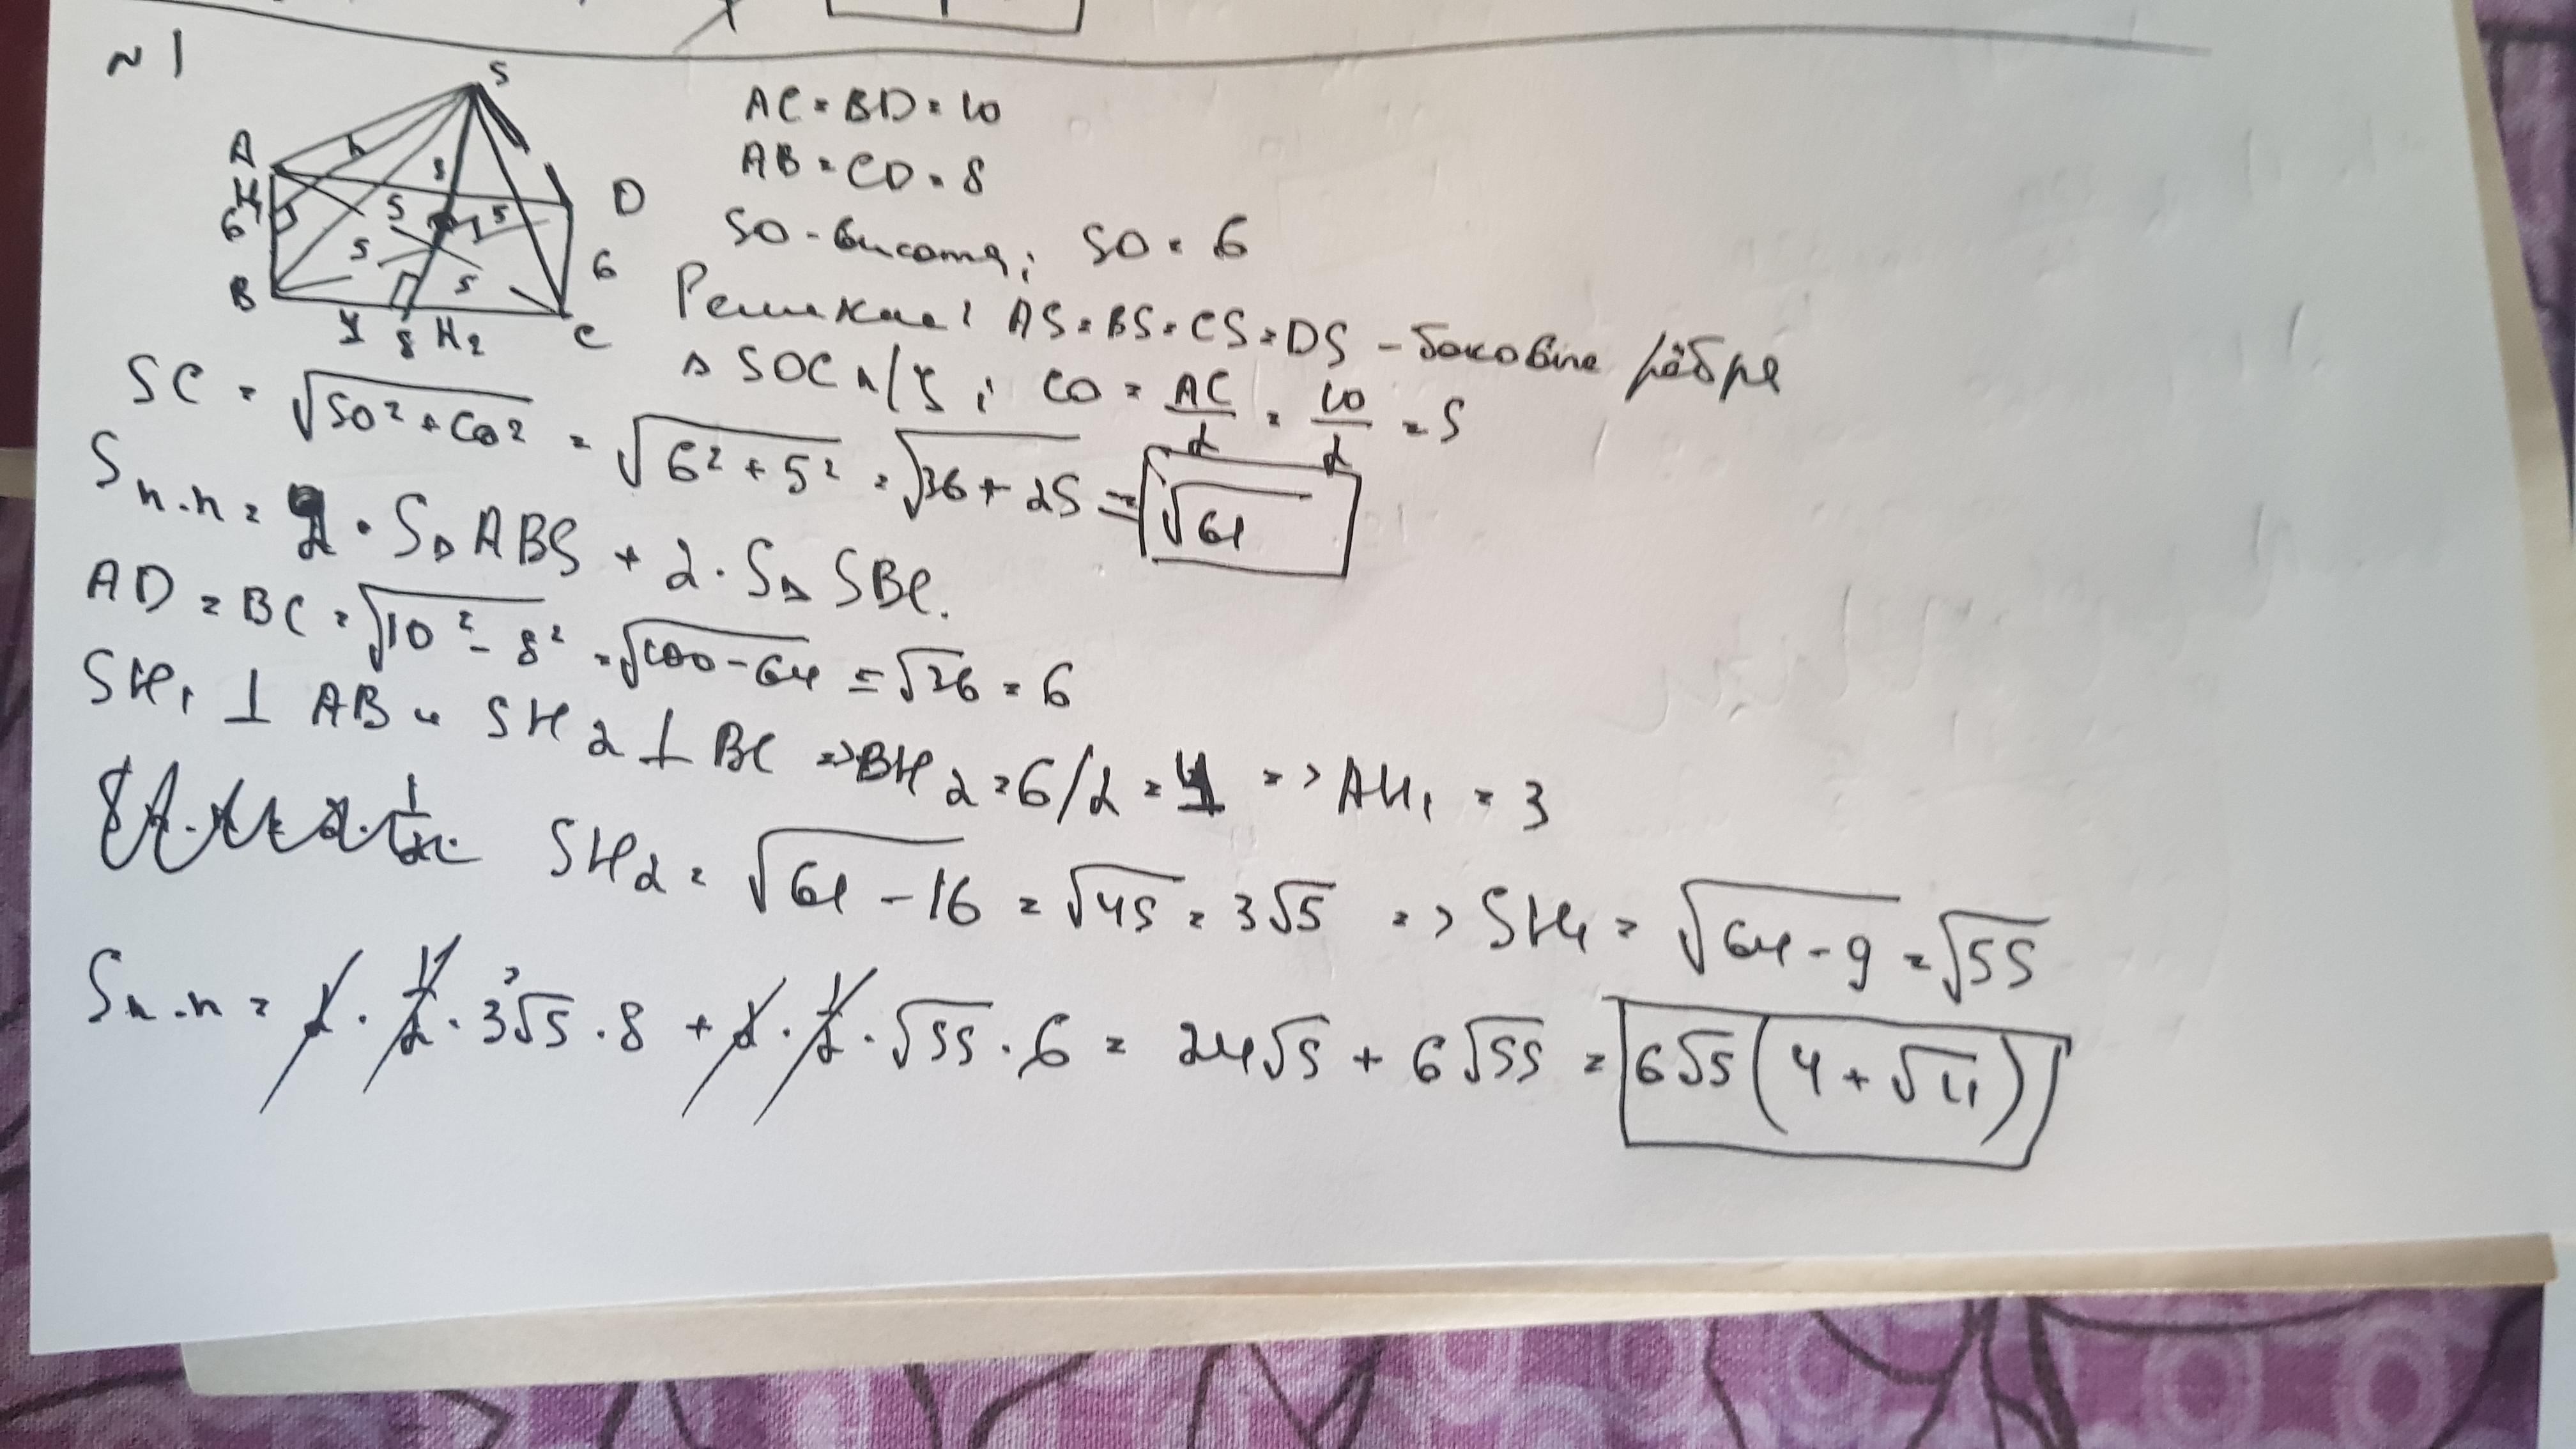 ~ 1
S
A
H₁
6
B
D
6
C
5
5
5
5
4
8
H₂
AC = BD = 10
AB = CD = 8
SO - висота; SO = 6
AS = BS = CS = DS - бокові ребра
△ SOC п/у ; CO = AC/2 = 10/2 = 5
SC = √(SO² + CO²) = √(6² + 5²) = √(36 + 25) = √61
Sп.п = 2 · S△ ABS + 2 · S△ SBC.
AD = BC = √(10² - 8²) = √(100 - 64) = √36 = 6
SH₁ ⊥ AB и SH₂ ⊥ BC => BH₂ = 6/2 = 4 => AH₁ = 3
SH₂ = √(61 - 16) = √45 = 3√5 => SH₁ = √(64 - 9) = √55
Sп.п = 2 · 1/2 · 3√5 · 8 + 2 · 1/2 · √55 · 6 = 24√5 + 6√55 = 6√5(4 + √11)